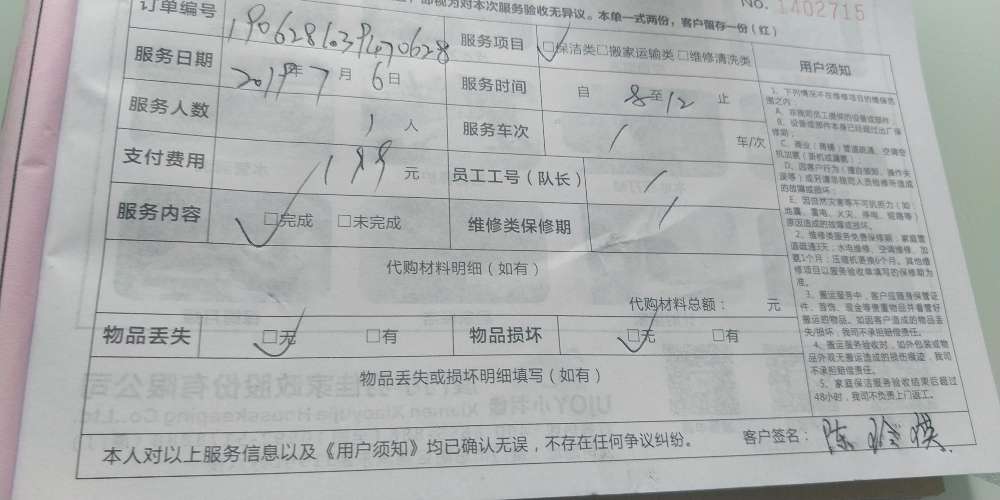 即视为对本次服务验收无异议。本单一式两份，客户留存一份（红）
No. 1402715
订单编号
服务项目 □保洁类□搬家运输类 □维修清洗类
服务日期 2019年7月6日
服务时间 自 8至12 止
服务人数 1人
服务车次 / 车/次
支付费用 188元
员工工号（队长） /
服务内容 □完成 □未完成
维修类保修期 /
代购材料明细（如有）
代购材料总额： 元
物品丢失 □无 □有
物品损坏 □无 □有
物品丢失或损坏明细填写（如有）
本人对以上服务信息以及《用户须知》均已确认无误，不存在任何争议纠纷。
客户签名：
用户须知
1、下列情况不在维修项目的维保范
围之内：
A、非我司员工提供的设备或部件；
B、设备或部件本身已经超过出厂保
修期；
C、商业（商铺）管道疏通、空调空
机加氨（新机或漏氨）；
E、因自然灾害等不可抗原力（如：
地震、雷电、火灾、停电、短路等）
原因造成的故障或损坏。
2、维修类服务免费保修期：家庭管
道疏通3天；水电维修、空调维修、加
氨1个月；压缩机更换6个月。其他维
修项目以服务验收单填写的保修期为
准。
3、搬运服务中，客户应随身保管证
件、首饰、现金等贵重物品并看管好
搬运的物品。如因客户造成的物品丢
失/损坏，我司不承担赔偿责任。
4、搬运服务验收时，如外包装或物
品外观无搬运造成的损伤痕迹，我司
不承担赔偿责任。
5、家庭保洁服务验收结束后超过
48小时，我司不负责上门返工。